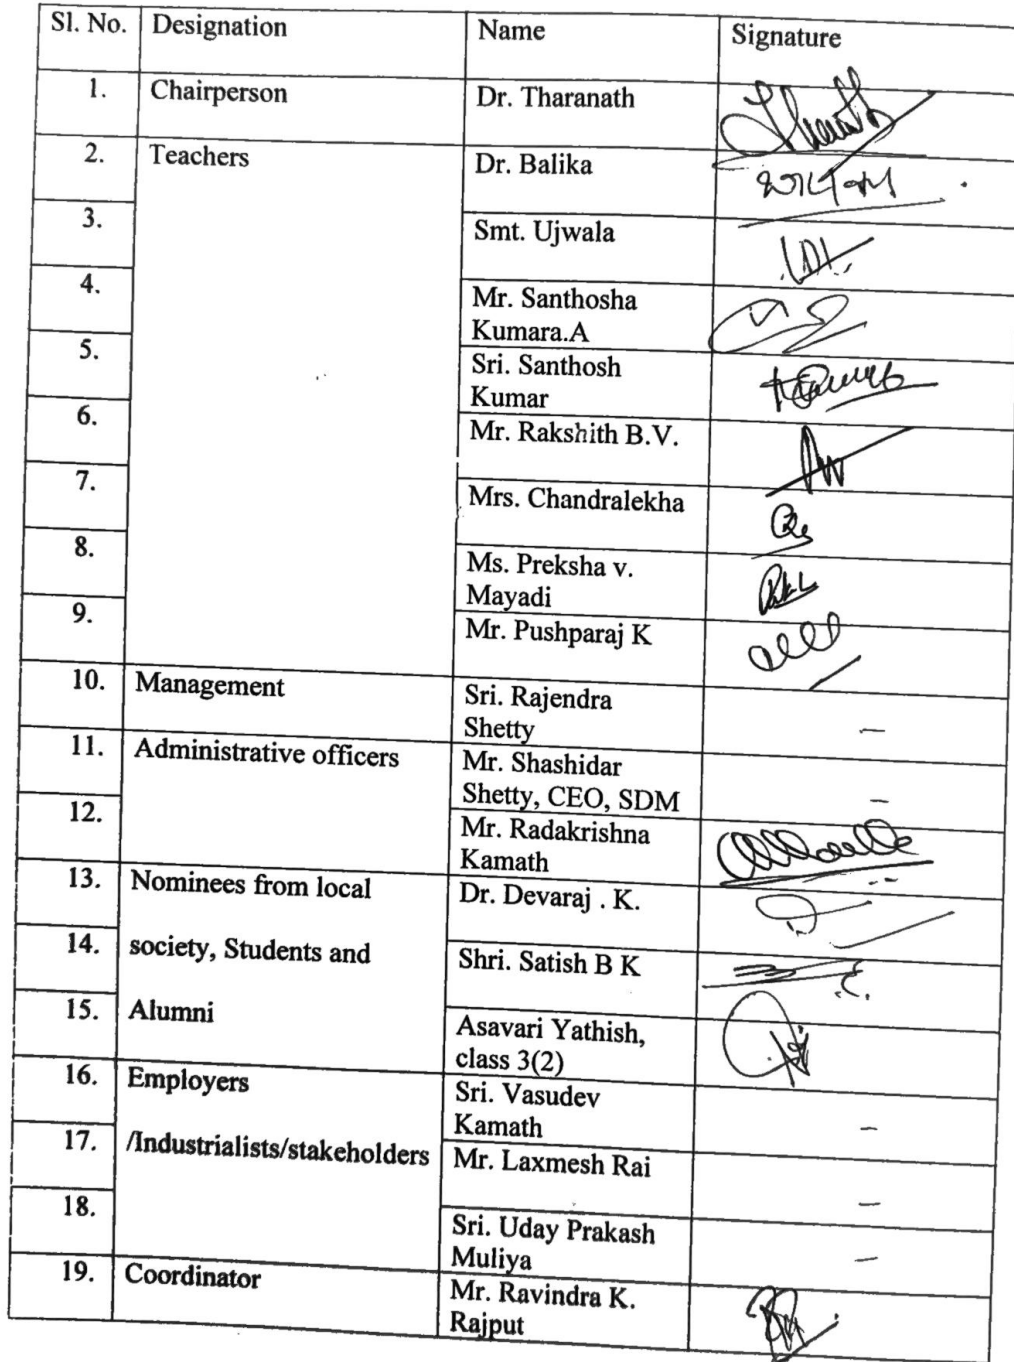 Sl. No. Designation Name Signature
1. Chairperson Dr. Tharanath
2. Teachers Dr. Balika
3. Smt. Ujwala
4. Mr. Santhosha
Kumara.A
5. Sri. Santhosh
Kumar
6. Mr. Rakshith B.V.
7. Mrs. Chandralekha
8. Ms. Preksha v.
Mayadi
9. Mr. Pushparaj K
10. Management Sri. Rajendra
Shetty –
11. Administrative officers Mr. Shashidar
Shetty, CEO, SDM –
12. Mr. Radakrishna
Kamath
13. Nominees from local Dr. Devaraj . K.
14. society, Students and Shri. Satish B K
15. Alumni Asavari Yathish,
class 3(2)
16. Employers Sri. Vasudev
Kamath –
17. /Industrialists/stakeholders Mr. Laxmesh Rai –
18. Sri. Uday Prakash
Muliya –
19. Coordinator Mr. Ravindra K.
Rajput